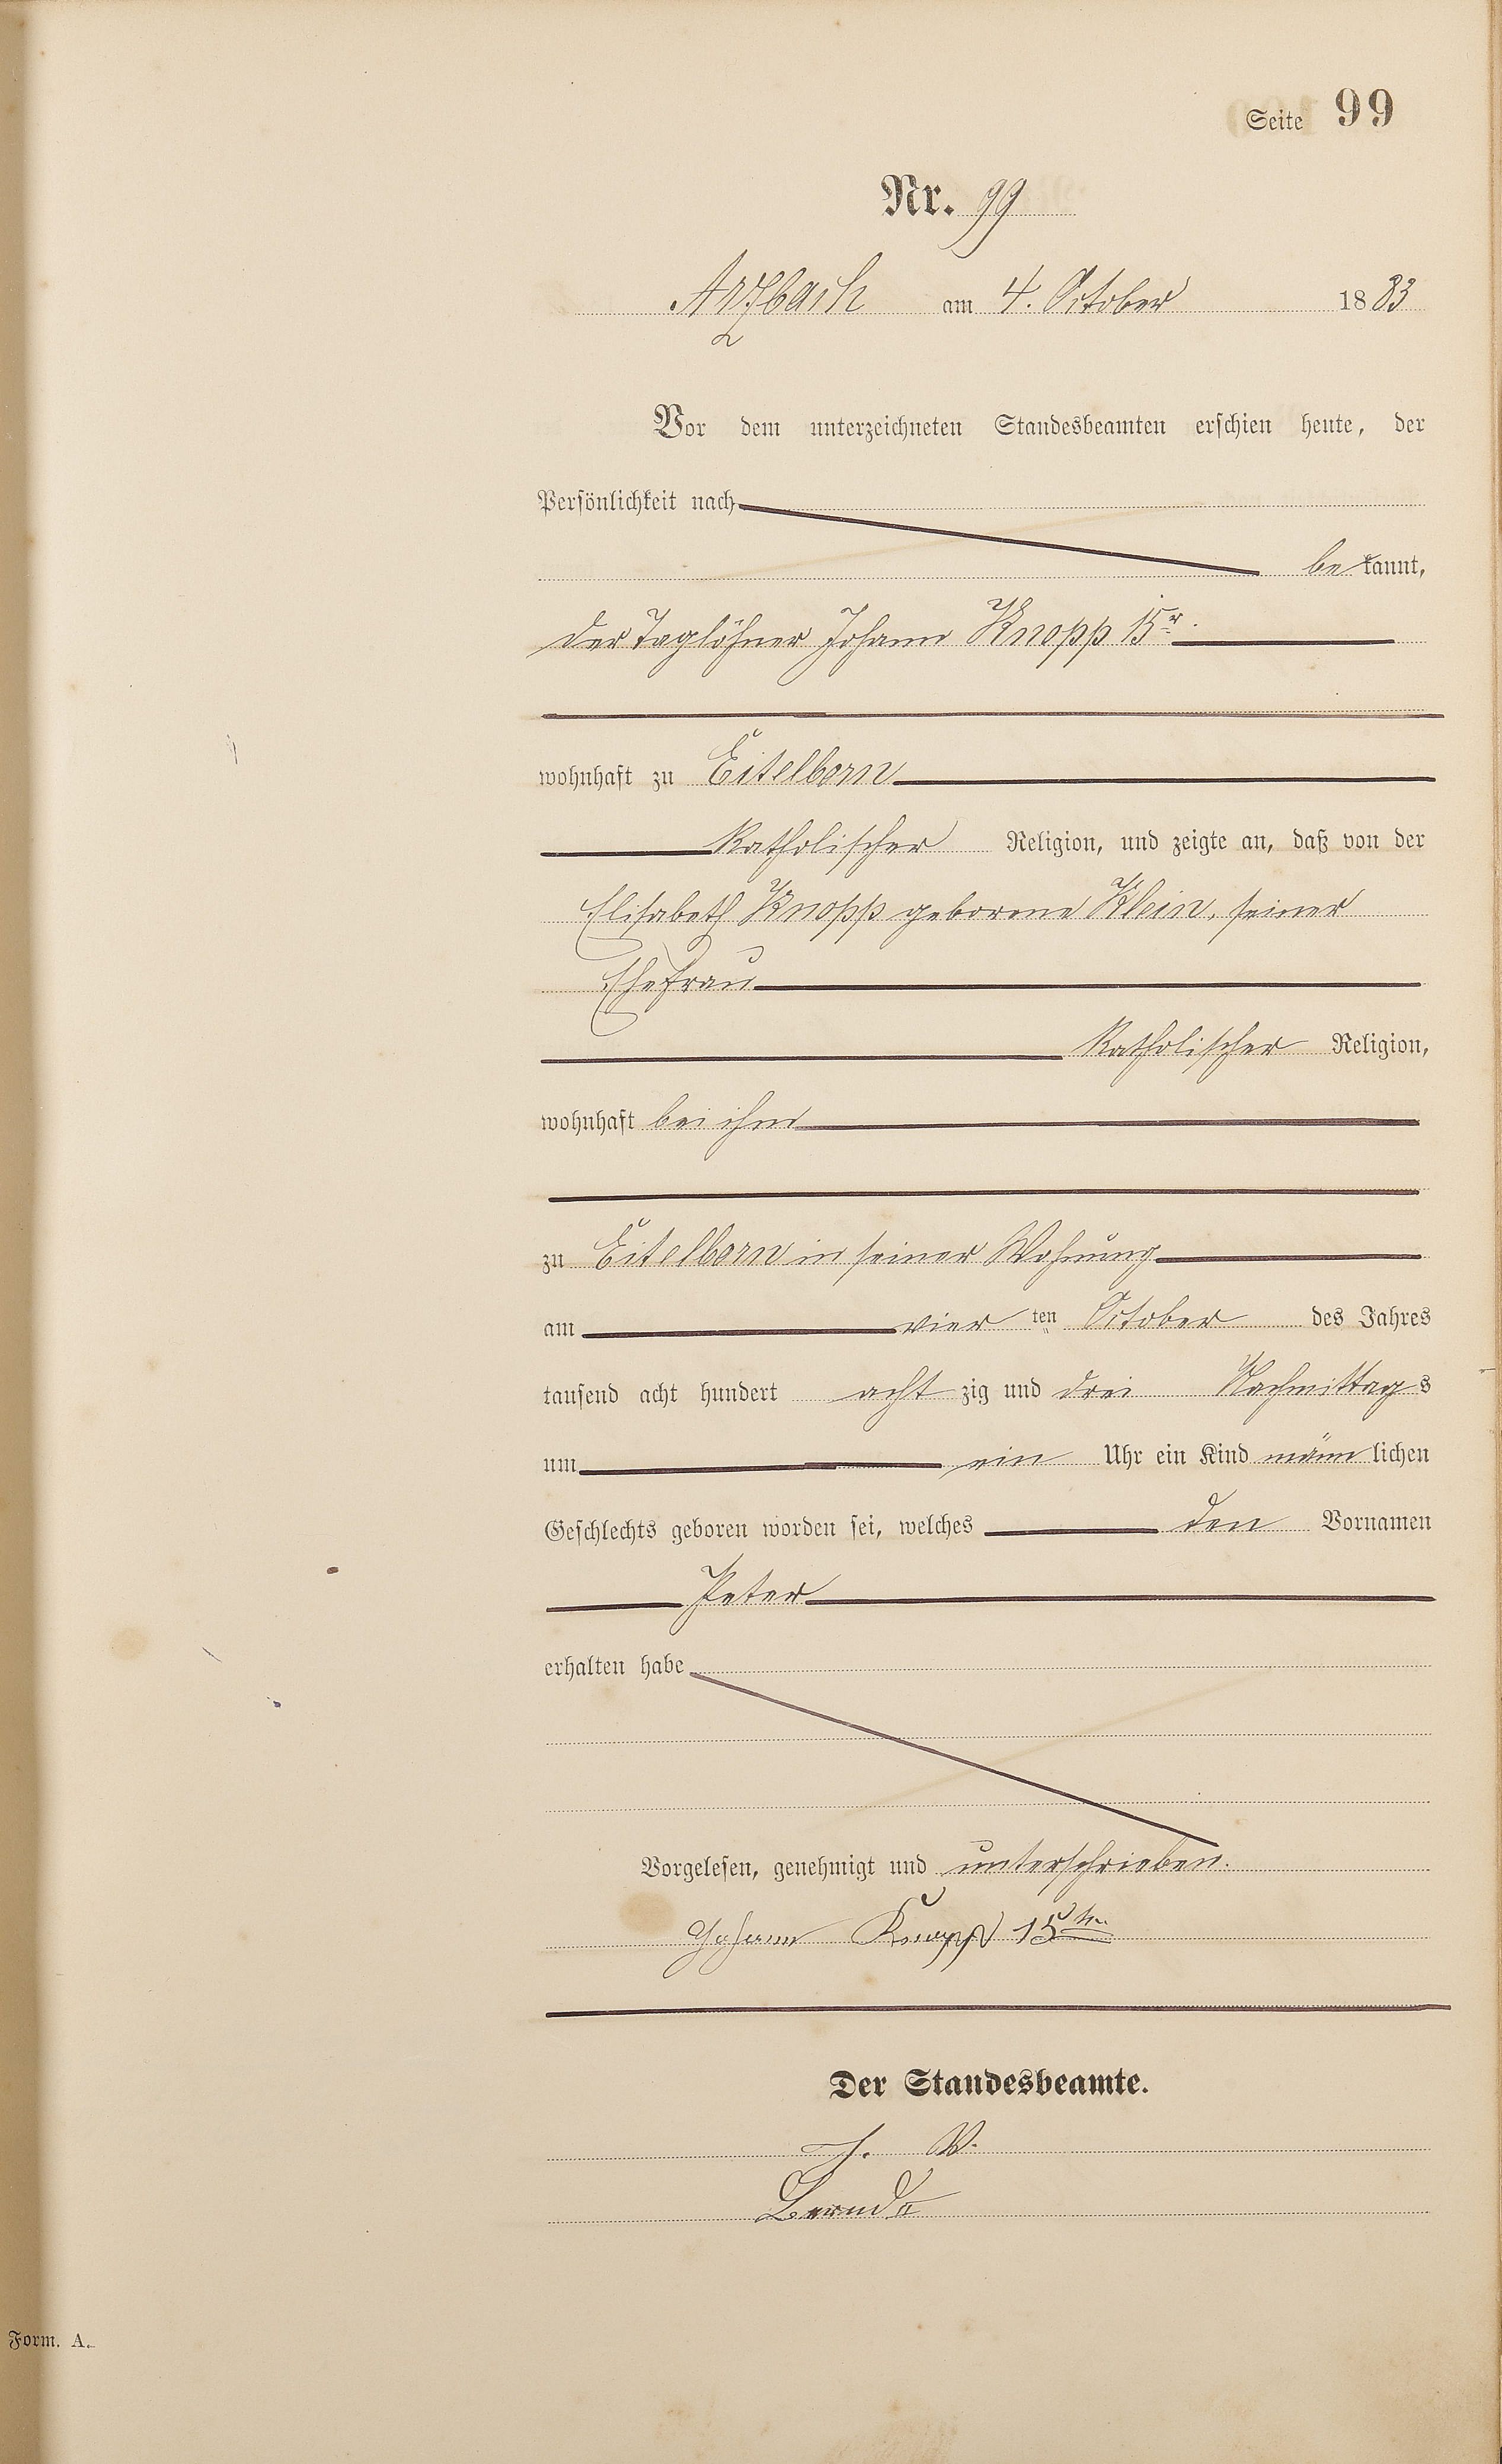 Seite 99
Nr. 99
Arzbach am 4. October 1883
Vor dem unterzeichneten Standesbeamten erschien heute, der
Persönlichkeit nach
be kannt,
der Taglöhner Johann Knopp 15r.
wohnhaft zu Eitelborn
katholischer Religion, und zeigte an, daß von der
Elisabeth Knopp geborene Klein, seiner
Ehefrau
katholischer Religion,
wohnhaft bei ihm
zu Eitelborn in seiner Wohnung
am vier ten October des Jahres
tausend acht hundert acht zig und drei Nachmittag s
um ein Uhr ein Kind männ lichen
Geschlechts geboren worden sei, welches den Vornamen
Peter
erhalten habe
Vorgelesen, genehmigt und unterschrieben.
Johann Knopp 15ter
Der Standesbeamte.
J. V.
Form. A.